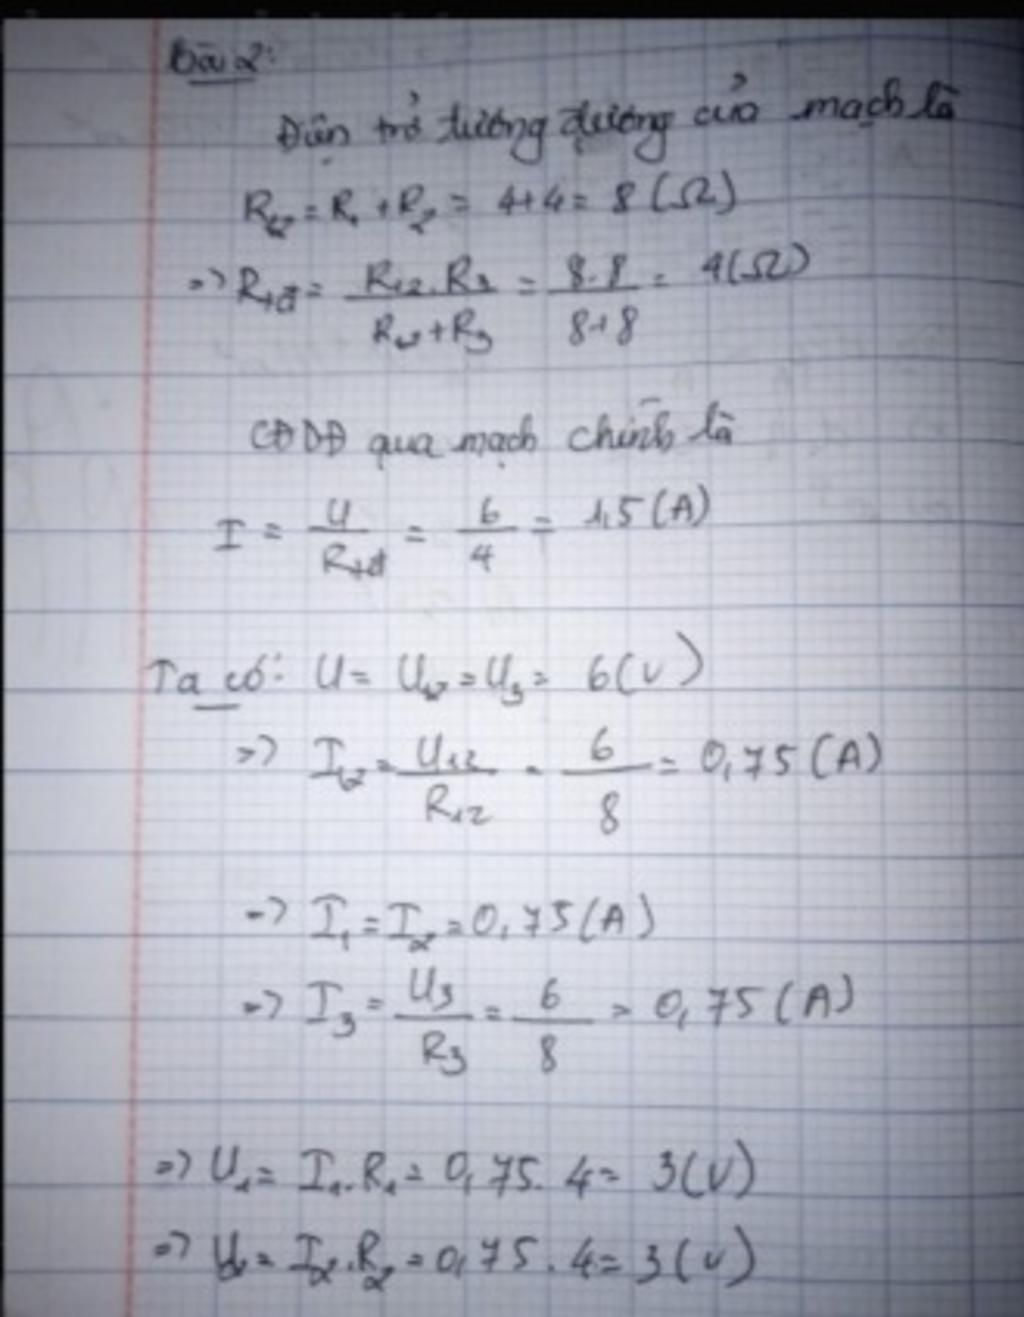 Bài 2:
Điện trở tương đương của mạch là
R₁₂ = R₁ + R₂ = 4+4 = 8 (Ω)
=> Rtđ = R₁₂.R₃ / R₁₂+R₃ = 8.8 / 8+8 = 4(Ω)
CĐDĐ qua mạch chính là
I = U / Rtđ = 6 / 4 = 1,5 (A)
Ta có: U = U₁₂ = U₃ = 6(V)
=> I₁₂ = U₁₂ / R₁₂ = 6 / 8 = 0,75 (A)
=> I₁ = I₂ = 0,75 (A)
=> I₃ = U₃ / R₃ = 6 / 8 = 0,75 (A)
=> U₁ = I₁.R₁ = 0,75.4 = 3(V)
=> U₂ = I₂.R₂ = 0,75.4 = 3(V)